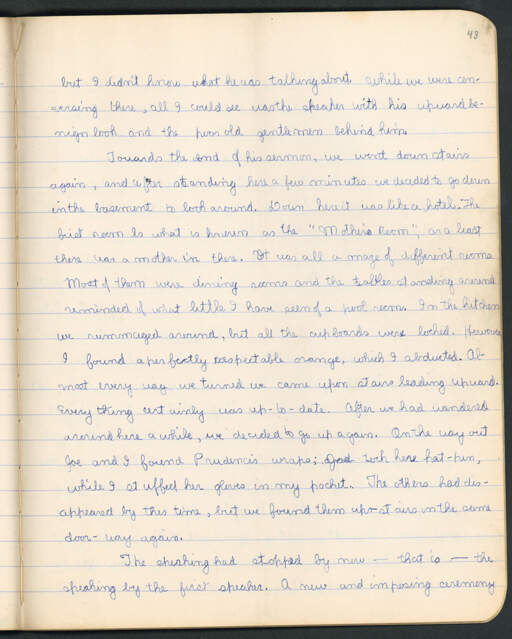 48
but I didn't know what he was talking about while we were con-
versing there, all I could see was the speaker with his upward be-
nign look and the poor old gentlemen behind him.
Towards the end of his sermon, we went down stairs
again, and after standing here a few minutes we decided to go down
in the basement to look around. Down here it was like a hotel. The
first room is what is known as the "Mothers Room", or at least
there was a mother in there. It was all a maze of different rooms
Most of them were dining rooms and the tables standing around
reminded of what little I have seen of a pool room. In the kitchen
we rummaged around, but all the cupboards were locked. However
I found a perfectly respectable orange, which I abducted. Al-
most every way we turned we came upon stairs leading upward.
Every thing certainly was up-to-date. After we had wandered
around here a while, we decided to go up again. On the way out
Joe and I found Prudence's wraps; Joe took her hat-pin,
while I stuffed her gloves in my pocket. The others had dis-
appeared by this time, but we found them up-stairs in the same
door-way again.
The speaking had stopped by now — that is — the
speaking by the first speaker. A new and imposing ceremony